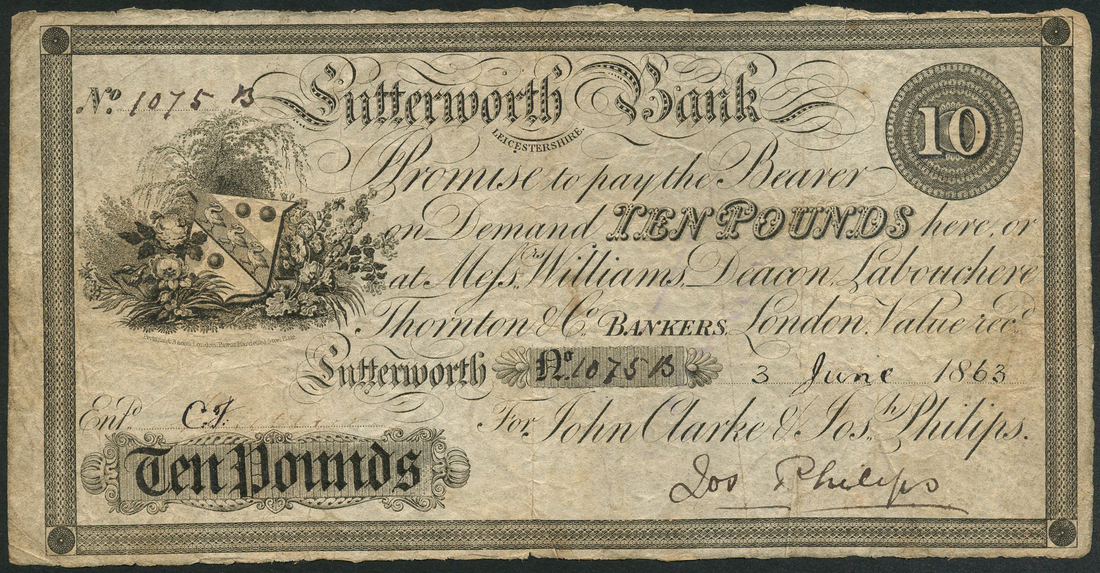 No 1075 B
Lutterworth Bank
LEICESTERSHIRE.
10
I Promise to pay the Bearer
on Demand TEN POUNDS here, or
at Messrs Williams, Deacon, Labouchere
Thornton & Co. BANKERS, London, Value recd.
Lutterworth No. 1075 B 3 June 1863
Entd. C.J.
For John Clarke & Josh. Philips.
Ten Pounds
Jos Philips